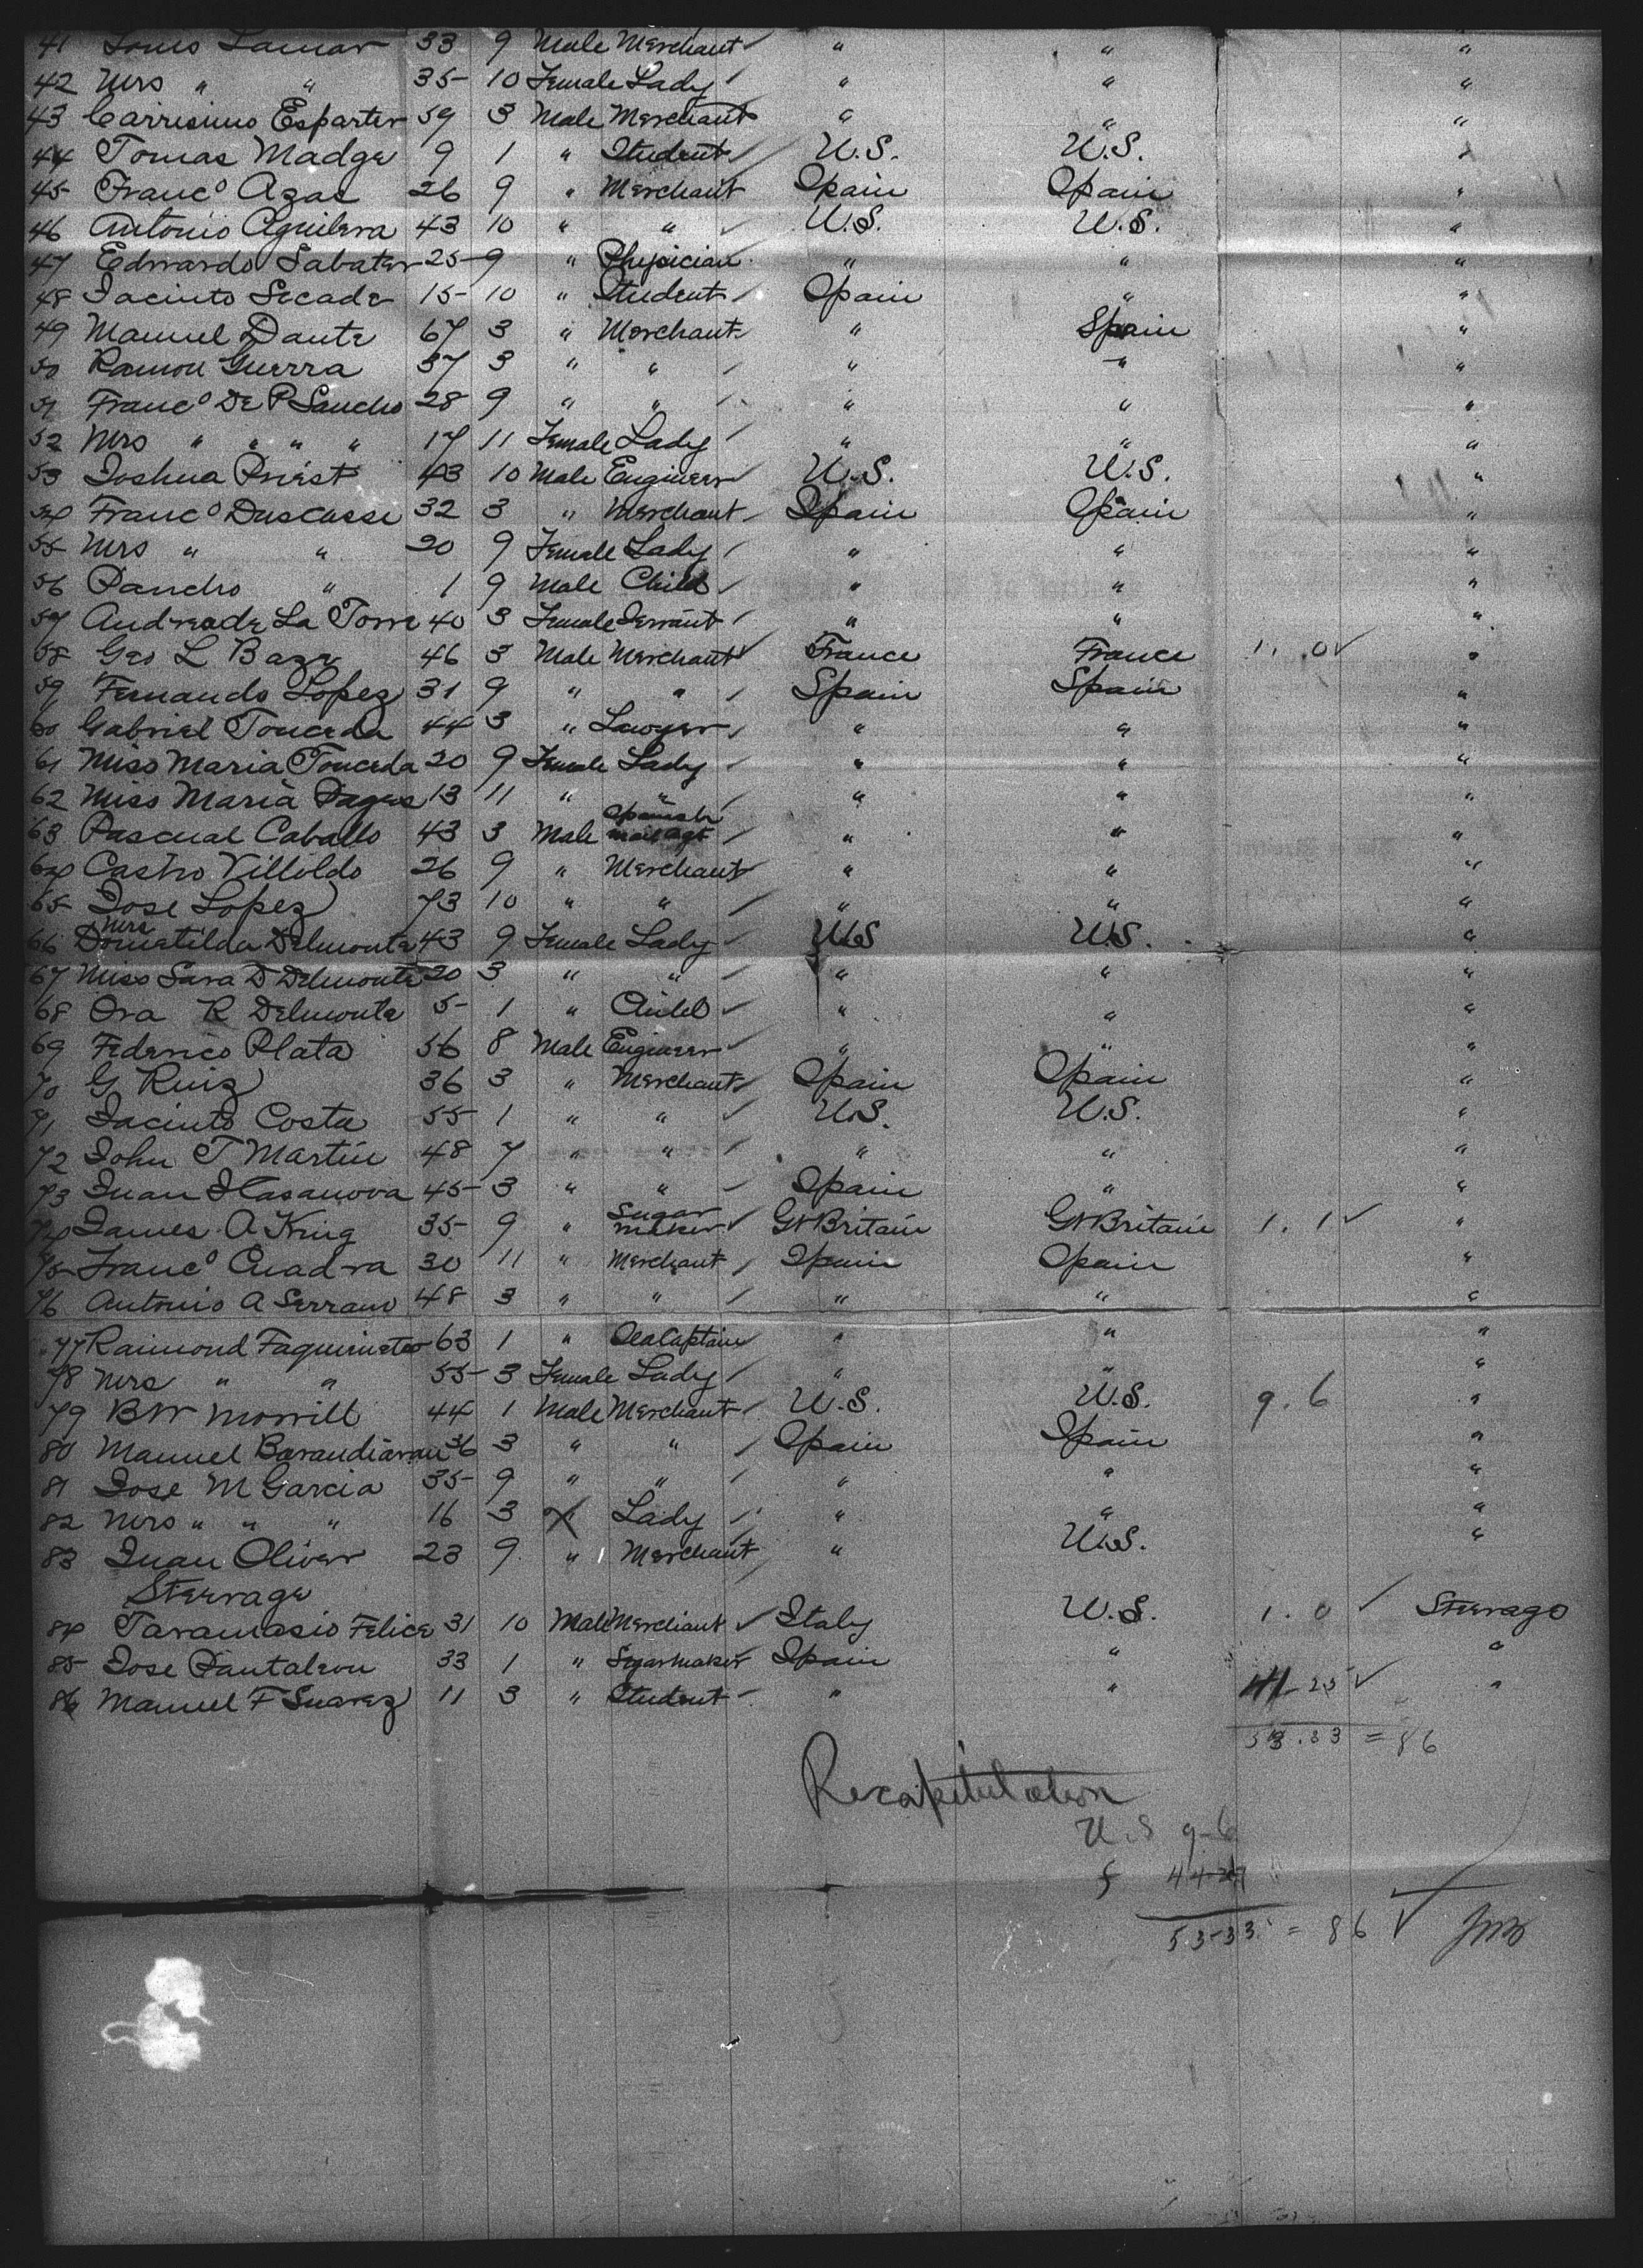 41 Louis Lamar 33 9 Male Merchant " " "
42 Mrs " " 35 10 Female Lady " " "
43 Carrisimo Esparter 59 3 Male Merchant " " "
44 Tomas Madge 9 1 " Student U.S. U.S. "
45 Franco Azas 26 9 " Merchant Spain Spain "
46 Antonio Aguilera 43 10 " " U.S. U.S. "
47 Edwardo Sabater 25 9 " Physician " " "
48 Jacinto Secade 15 10 " Student Spain " "
49 Manuel Dante 67 3 " Merchant " Spain "
50 Ramon Guerra 37 3 " " " " "
51 Franco De P Sancho 28 9 " " " " "
52 Mrs " " " " 17 11 Female Lady " " "
53 Joshua Priest 43 10 Male Engineer U.S. U.S. "
54 Franco Duscasse 32 3 " Merchant Spain Spain "
55 Mrs " " 20 9 Female Lady " " "
56 Pancho " 1 9 Male Child " " "
57 Andrea de La Torre 40 3 Female Servant " " "
58 Geo L Baze 46 3 Male Merchant France France 1. 0 "
59 Fernando Lopez 31 9 " " Spain Spain "
60 Gabriel Touceda 44 3 " Lawyer " " "
61 Miss Maria Touceda 20 9 Female Lady " " "
62 Miss Maria Pages 13 11 " " " " "
63 Pascual Caballo 43 3 Male Spanish mail agt " " "
64 Castro Villoldo 26 9 " Merchant " " "
65 Jose Lopez 73 10 " " " " "
66 Mrs Domatilda Delmonte 43 9 Female Lady U.S U.S. "
67 Miss Sara D Delmonte 20 3 " " " " "
68 Ora R Delmonte 5 1 " Child " " "
69 Federico Plata 56 8 Male Engineer " " "
70 G Ruiz 36 3 " Merchant Spain Spain "
71 Jacinto Costa 55 1 " " U.S. U.S. "
72 John T Martin 48 7 " " " " "
73 Juan Hasanova 45 3 " " Spain " "
74 James A King 35 9 " Sugar maker Gt Britain Gt Britain 1. 1 "
75 Franco Cuadra 30 11 " Merchant Spain Spain "
76 Antonio A Serrano 48 3 " " " " "
77 Raimond Faquineto 63 1 " Sea Captain " " "
78 Mrs " " 55 3 Female Lady " " "
79 BW Morrill 44 1 Male Merchant U.S. U.S. 9. 6 "
80 Manuel Barandiaran 36 3 " " Spain Spain "
81 Jose M Garcia 35 9 " " " " "
82 Mrs " " " 16 3 " Lady " " "
83 Juan Oliver 23 9 " Merchant " U.S. "
Steerage
84 Taramasio Felice 31 10 Male Merchant Italy U.S. 1. 0 Steerage
85 Jose Pantaleon 33 1 " Segar maker Spain " "
86 Manuel F Suarez 11 3 " Student " " 41 25 "
53.33 = 86
Recapitulation
U.S 9-6
f 44-27
53-33 = 86